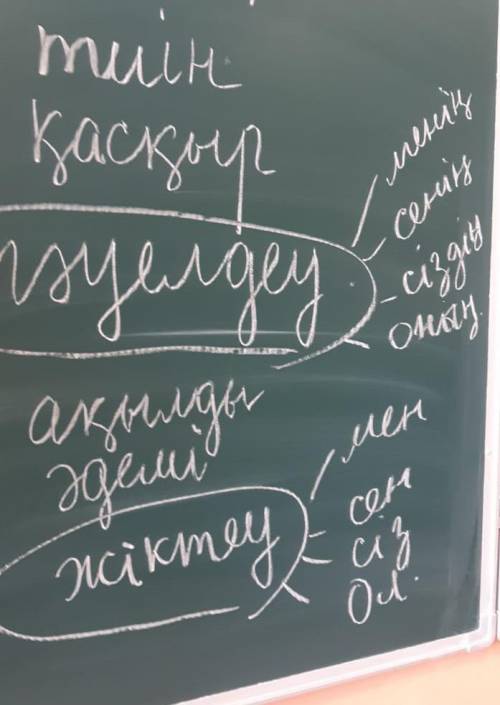 тиін
қасқыр
тәуелдеу
менің
сенің
сіздің
оның
ақылды
әдемі
жіктеу
мен
сен
сіз
Ол.